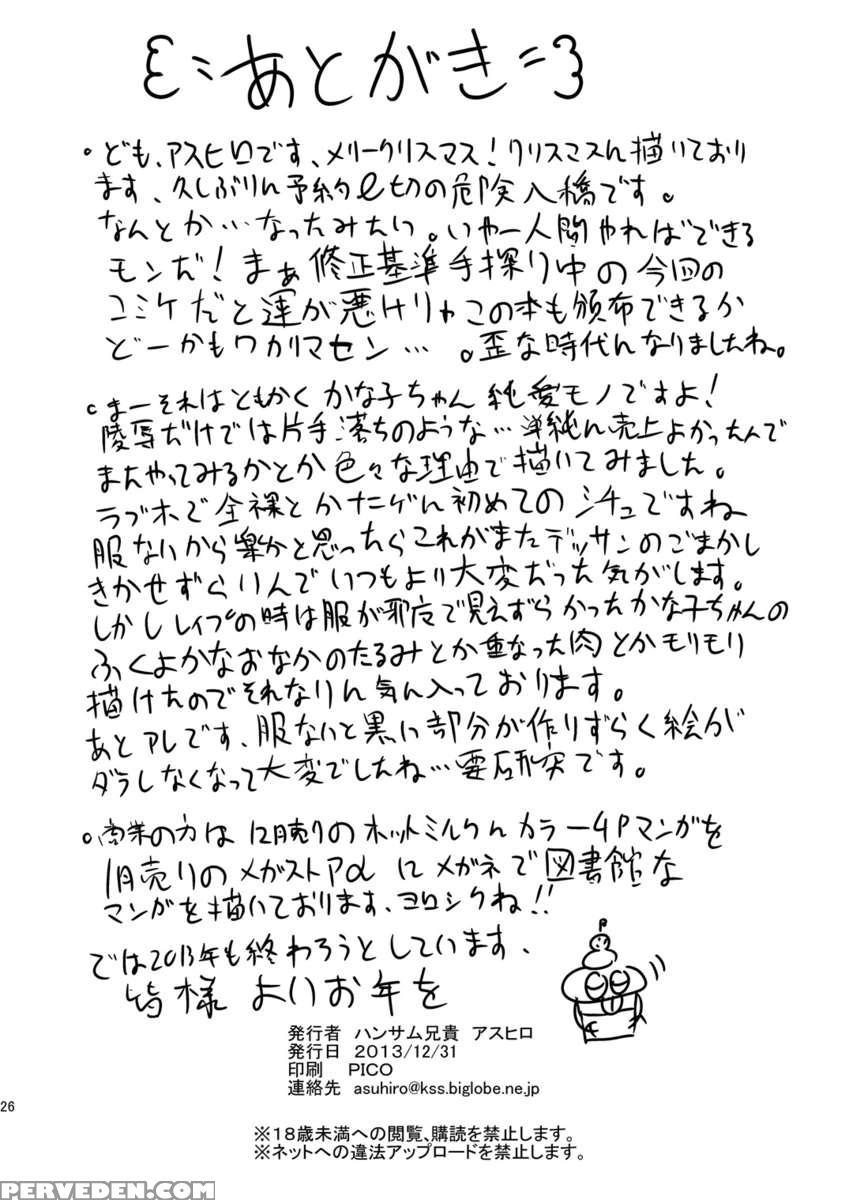 あとがき
ども、アスヒロです、メリークリスマス！クリスマスに描いており
ます、久しぶりに予約〆切の危険入橋です。
なんとか…なったみたい。いやー人間やればできる
モンだ！まぁ修正基準手探り中の今回の
コミケだと運が悪けりゃこの本も頒布できるか
どーかもワカリマセン…。歪な時代になりましたね。
まーそれはともかくかな子ちゃん純愛モノですよ！
陵辱だけでは片手落ちのような…単純に売上よかったんで
またやってみるかとか色々な理由で描いてみました。
ラブホで全裸とかなにげに初めてのシチュですね
服ないから楽かと思ったらこれがまたデッサンのごまかし
きかせずらいんでいつもより大変だった気がします。
しかしレイプの時は服が邪魔で見えずらかったかな子ちゃんの
ふくよかなおなかのたるみとか重なった肉とかモリモリ
描けたのでそれなりに気に入っております。
あとアレです、服ないと黒い部分が作りずらく絵が
ダラしなくなって大変でしたね…要研究です。
商業の方は12月売りのホットミルクにカラー4Pマンガを
1月売りのメガストアαにメガネで図書館な
マンガを描いております、ヨロシクね!!
では2013年も終わろうとしています、
皆様よいお年を
発行者　ハンサム兄貴　アスヒロ
発行日　2013/12/31
印刷　PICO
連絡先　asuhiro@kss.biglobe.ne.jp
26
※18歳未満への閲覧、購読を禁止します。
※ネットへの違法アップロードを禁止します。
PERVEDEN.COM